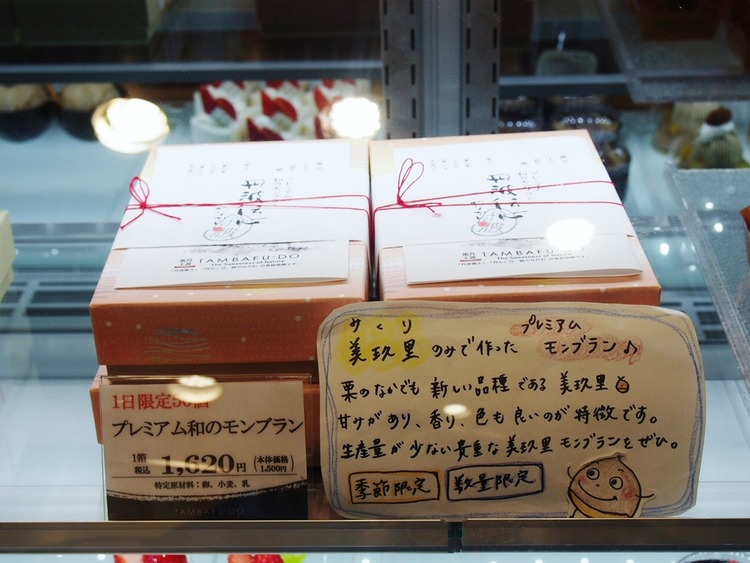 TAMBAFU-DO
The Sweetness of Nature
TAMBAFU-DO
The Sweetness of Nature
みくり
プレミアム
美玖里のみで作った モンブラン♪
栗のなかでも新しい品種である美玖里
甘みがあり、香り、色も良いのが特徴です。
生産量が少ない貴重な美玖里モンブランをぜひ。
季節限定 数量限定
1日限定50個
プレミアム和のモンブラン
1箱
税込 1,620円 (本体価格 1,500円)
特定原材料:卵、小麦、乳
TAMBAFU-DO